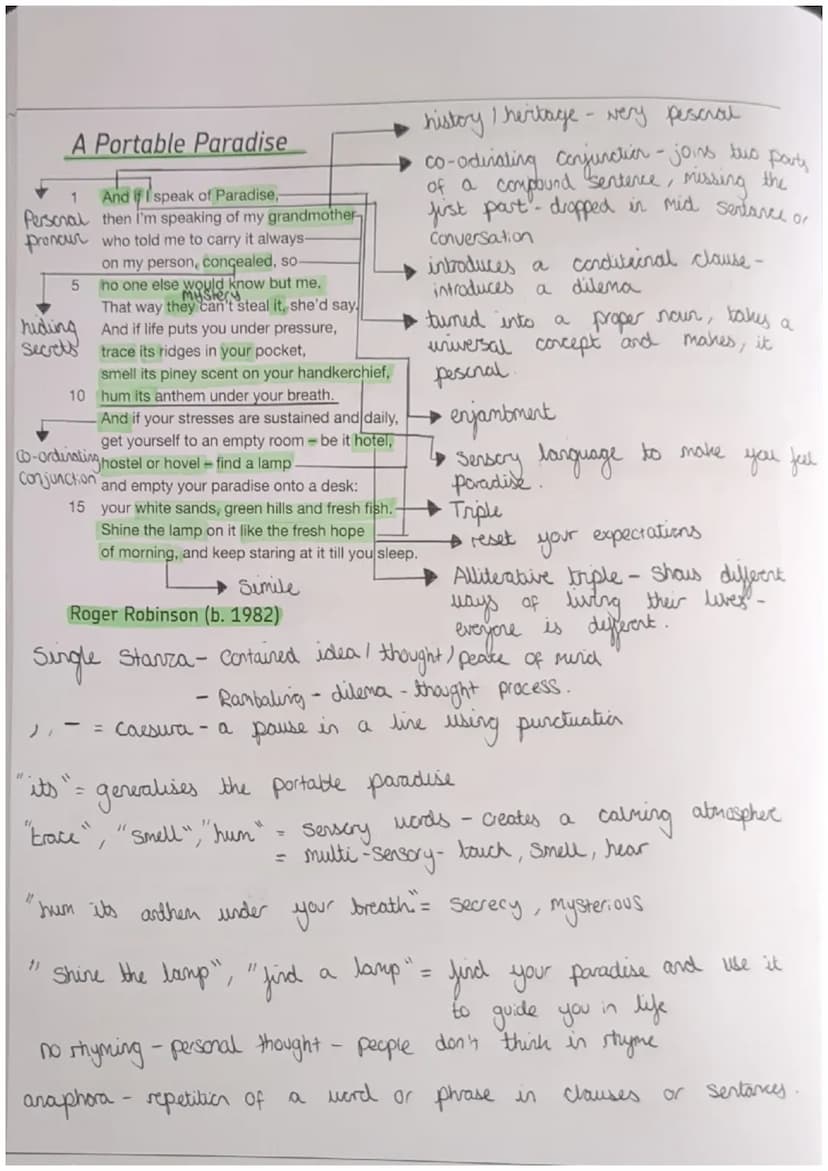 A Portable Paradise
1 And if I speak of Paradise,
then I'm speaking of my grandmother
who told me to carry it always
on my person, concealed, so
5 no one else would know but me.
mystery
That way they can't steal it, she'd say.
And if life puts you under pressure,
trace its ridges in your pocket,
smell its piney scent on your handkerchief,
10 hum its anthem under your breath.
And if your stresses are sustained and daily,
get yourself to an empty room – be it hotel,
hostel or hovel – find a lamp
and empty your paradise onto a desk:
15 your white sands, green hills and fresh fish.
Shine the lamp on it like the fresh hope
of morning, and keep staring at it till you sleep.
Roger Robinson (b. 1982)
Personal
pronoun
hiding
secrets
co-ordinating
conjunction
Simile
history / heritage - very personal
co-odinating conjunction - joins two parts
of a compound sentence, missing the
first part - dropped in mid sentence or
conversation
introduces a conditional clause -
introduces a dilema
turned into a proper noun, takes a
universal concept and makes, it
personal.
enjambment
sensory language to make you feel
paradise.
Triple
reset your expectations
Alliterative triple - shows different
ways of living their lives -
everyone is different.
Single Stanza - contained idea / thought / peace of mind
- Rambaling - dilema - thought process.
, . - = caesura - a pause in a line using punctuation
"its" = generalises the portable paradise
"trace", "smell", "hum" = sensory words - creates a calming atmospher
= multi-sensory - touch, smell, hear
"hum its anthem under your breath." = secrecy, mysterious
"Shine the lamp", "find a lamp" = find your paradise and use it
to guide you in life
no rhyming - personal thought - people don't think in rhyme
anaphora - repetition of a word or phrase in clauses or sentances.